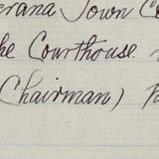 erana Town C
the Courthouse
(Chairman)